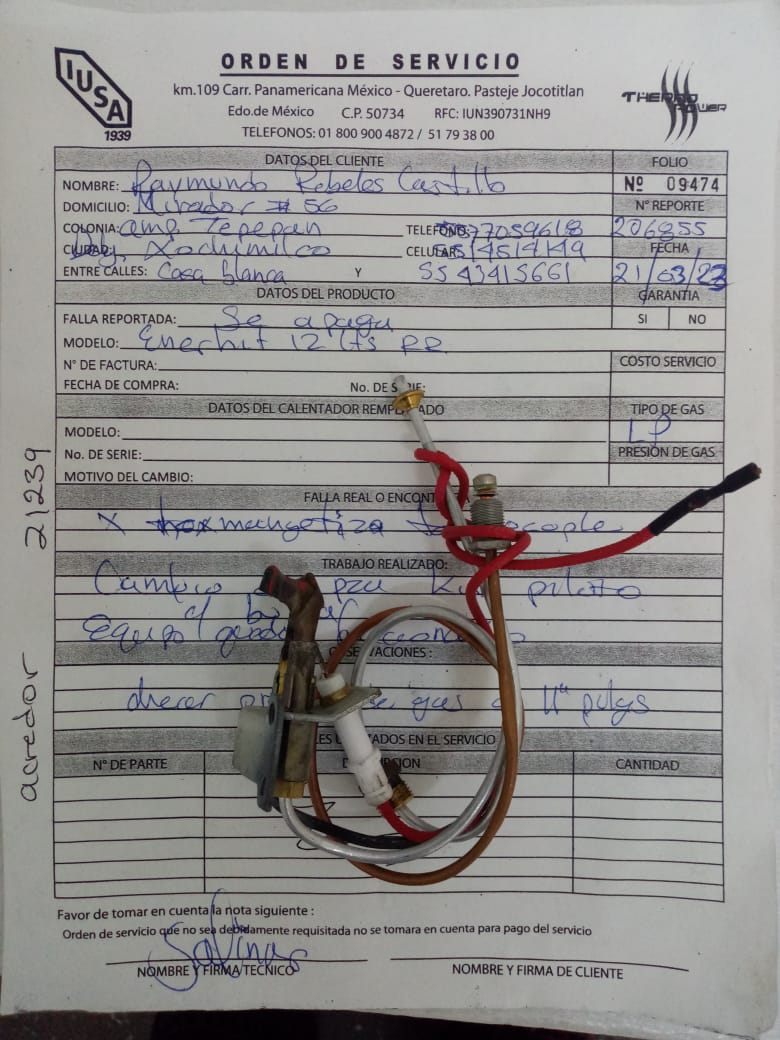 IUSA
1939
ORDEN DE SERVICIO
km.109 Carr. Panamericana México - Queretaro. Pasteje Jocotitlan
Edo.de México C.P. 50734 RFC: IUN390731NH9
TELEFONOS: 01 800 900 4872 / 51 79 38 00
THERMO POWER
DATOS DEL CLIENTE FOLIO
NOMBRE: Raymundo Rebeles Castillo Nº 09474
DOMICILIO: Mirador # 56 N° REPORTE
COLONIA: amp Tepepan TELEFONO: 206855
CIUDAD: Xochimilco CELULAR: 5514514149 FECHA
ENTRE CALLES: Casa blanca Y 5543415661 21/03/23
DATOS DEL PRODUCTO GARANTIA
FALLA REPORTADA: Se apaga SI NO
MODELO: Enerhit 12 lts RR
N° DE FACTURA: COSTO SERVICIO
FECHA DE COMPRA: No. DE
DATOS DEL CALENTADOR TIPO DE GAS
MODELO: LP
No. DE SERIE: PRESIÓN DE GAS
MOTIVO DEL CAMBIO:
FALLA REAL O
X
TRABAJO REALIZADO:
Cambio pza piloto
Equipo
OBSERVACIONES :
gas a 11" pulgs
EN EL SERVICIO
N° DE PARTE CANTIDAD
Favor de tomar en cuenta la nota siguiente :
Orden de servicio que no sea debidamente requisitada no se tomara en cuenta para pago del servicio
Salinas
NOMBRE Y FIRMA TECNICO NOMBRE Y FIRMA DE CLIENTE
acredor 21239